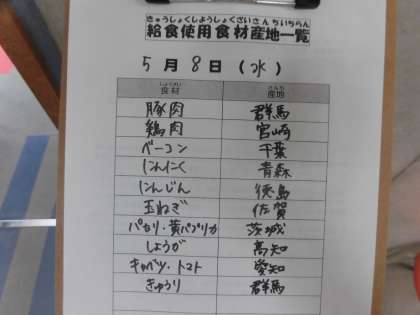 きゅうしょくしようしょくざいさんちいちらん
給食使用食材産地一覧
5月8日(水)
しょくざい さんち
食材 産地
豚肉 群馬
鶏肉 宮崎
ベーコン 千葉
にんにく 青森
にんじん 徳島
玉ねぎ 佐賀
パセリ・黄パプリカ 茨城
しょうが 高知
キャベツ・トマト 愛知
きゅうり 群馬